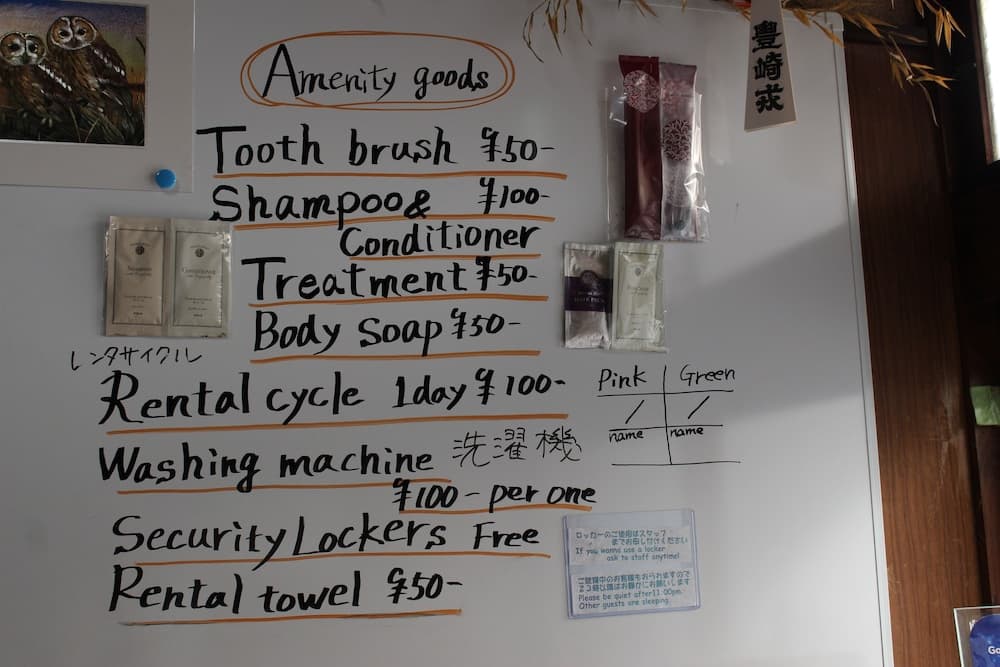 Amenity goods
Tooth brush ¥50-
Shampoo& ¥100-
Conditioner
Treatment ¥50-
Body Soap ¥50-
レンタサイクル
Rental cycle 1day ¥100-
Pink Green
/ /
name name
Washing machine 洗濯機
¥100- per one
Security Lockers Free
Rental towel ¥50-
ロッカーのご使用はスタッフ
までお申し付けください
If you wanna use a locker
ask to staff anytime!
ご就寝中のお客様もおられますので
23時以降はお静かにお願いします
Please be quiet after11:00pm.
Other guests are sleeping.
豊崎
Go